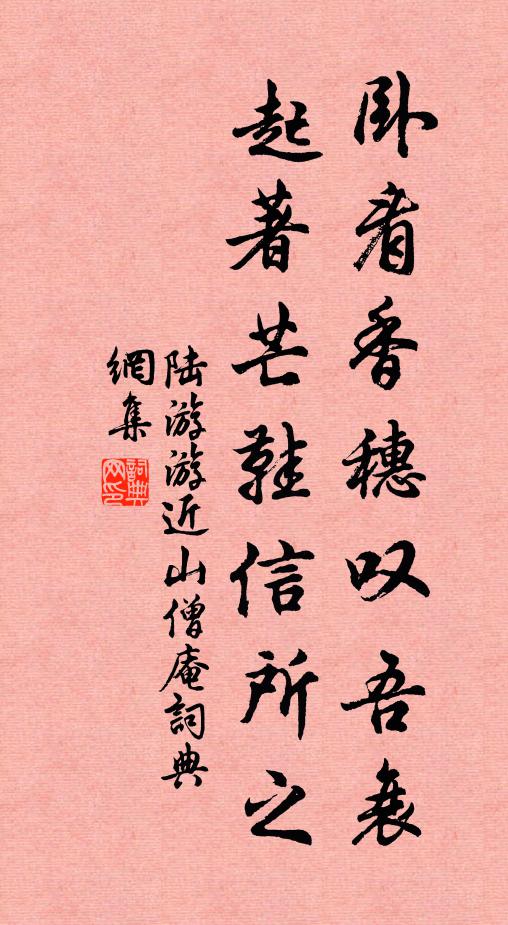 卧看香穗叹吾衰
起著芒鞋信所之
陆游游近山僧庵詞典
網集
詞典網印